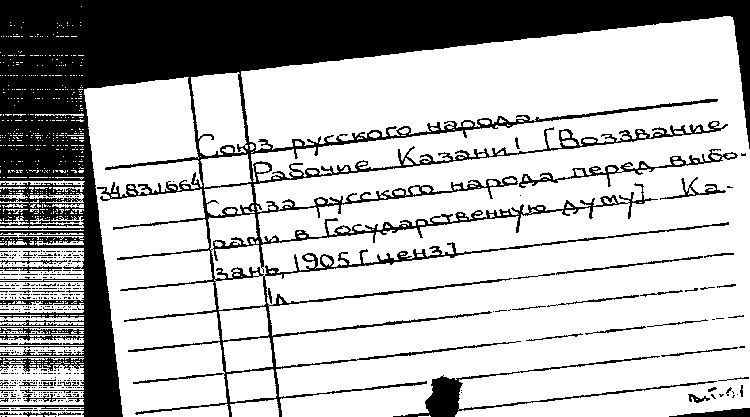 Союз русского народа.
34.83.1664 Рабочие Казани! [Воззвание
Союза русского народа перед выбо-
рами в Государственную думу] Ка-
зань, 1905 [ценз.]
1 л.